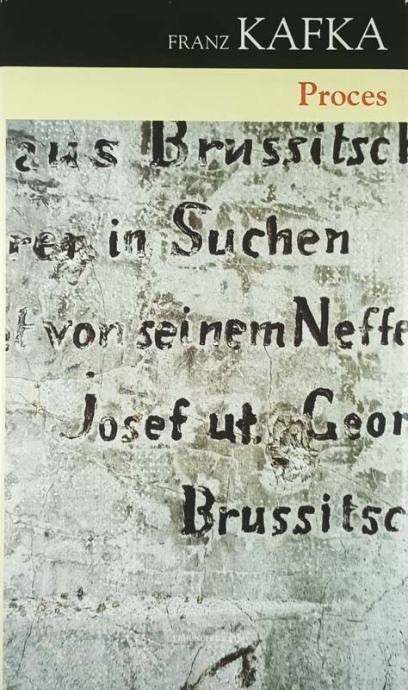 FRANZ KAFKA
Proces
aus Brussitsch
ren in Suchen
et von seinem Neffe
Josef ut. Geor
Brussitsc